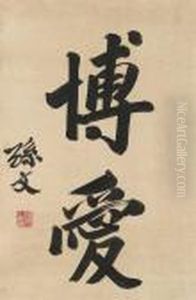 博愛
孫文
NiceArtGallery.com